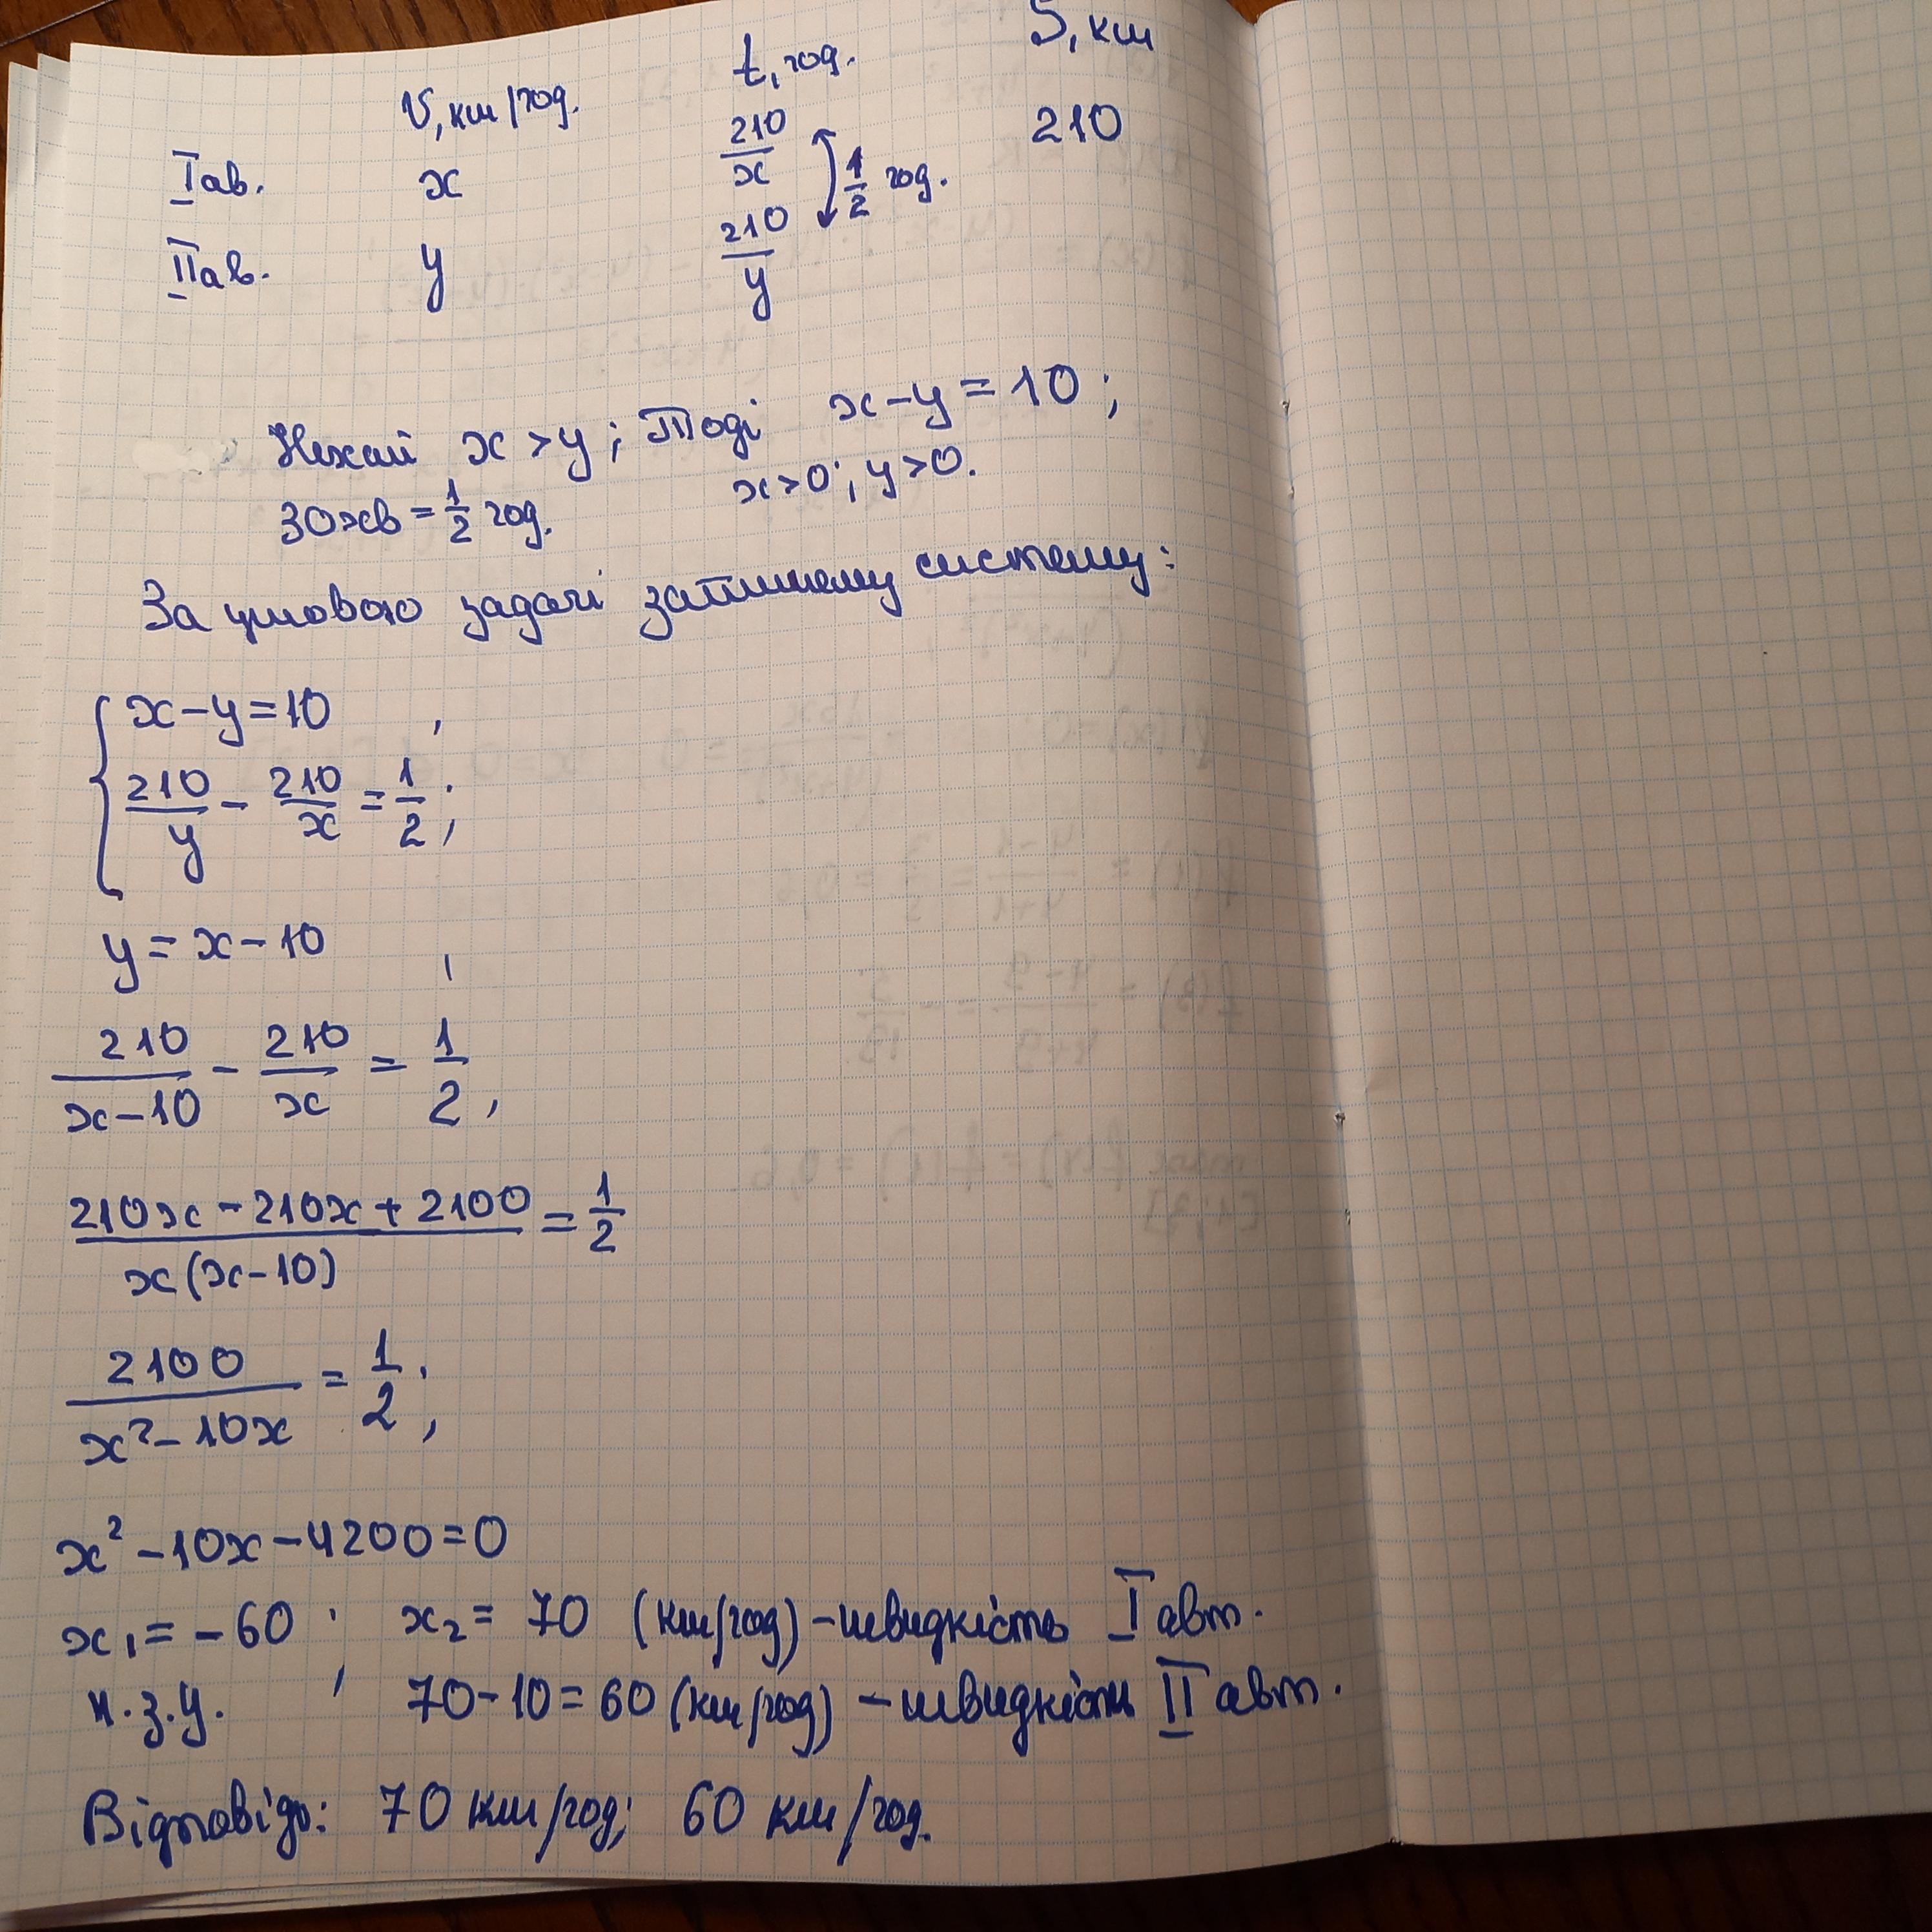 V, км/год. t, год. S, км
I ав. x 210/x 210
1/2 год.
II ав. y 210/y
Нехай x > y; Тоді x - y = 10;
30 хв = 1/2 год. x > 0; y > 0.
За умовою задачі запишему систему:
{ x - y = 10 ,
210/y - 210/x = 1/2;
y = x - 10 ,
210/(x-10) - 210/x = 1/2,
(210x - 210x + 2100)/(x(x-10)) = 1/2
2100/(x² - 10x) = 1/2;
x² - 10x - 4200 = 0
x₁ = -60 ; x₂ = 70 (км/год) - швидкість I авт.
н.з.у. 70 - 10 = 60 (км/год) - швидкість II авт.
Відповідь: 70 км/год; 60 км/год.